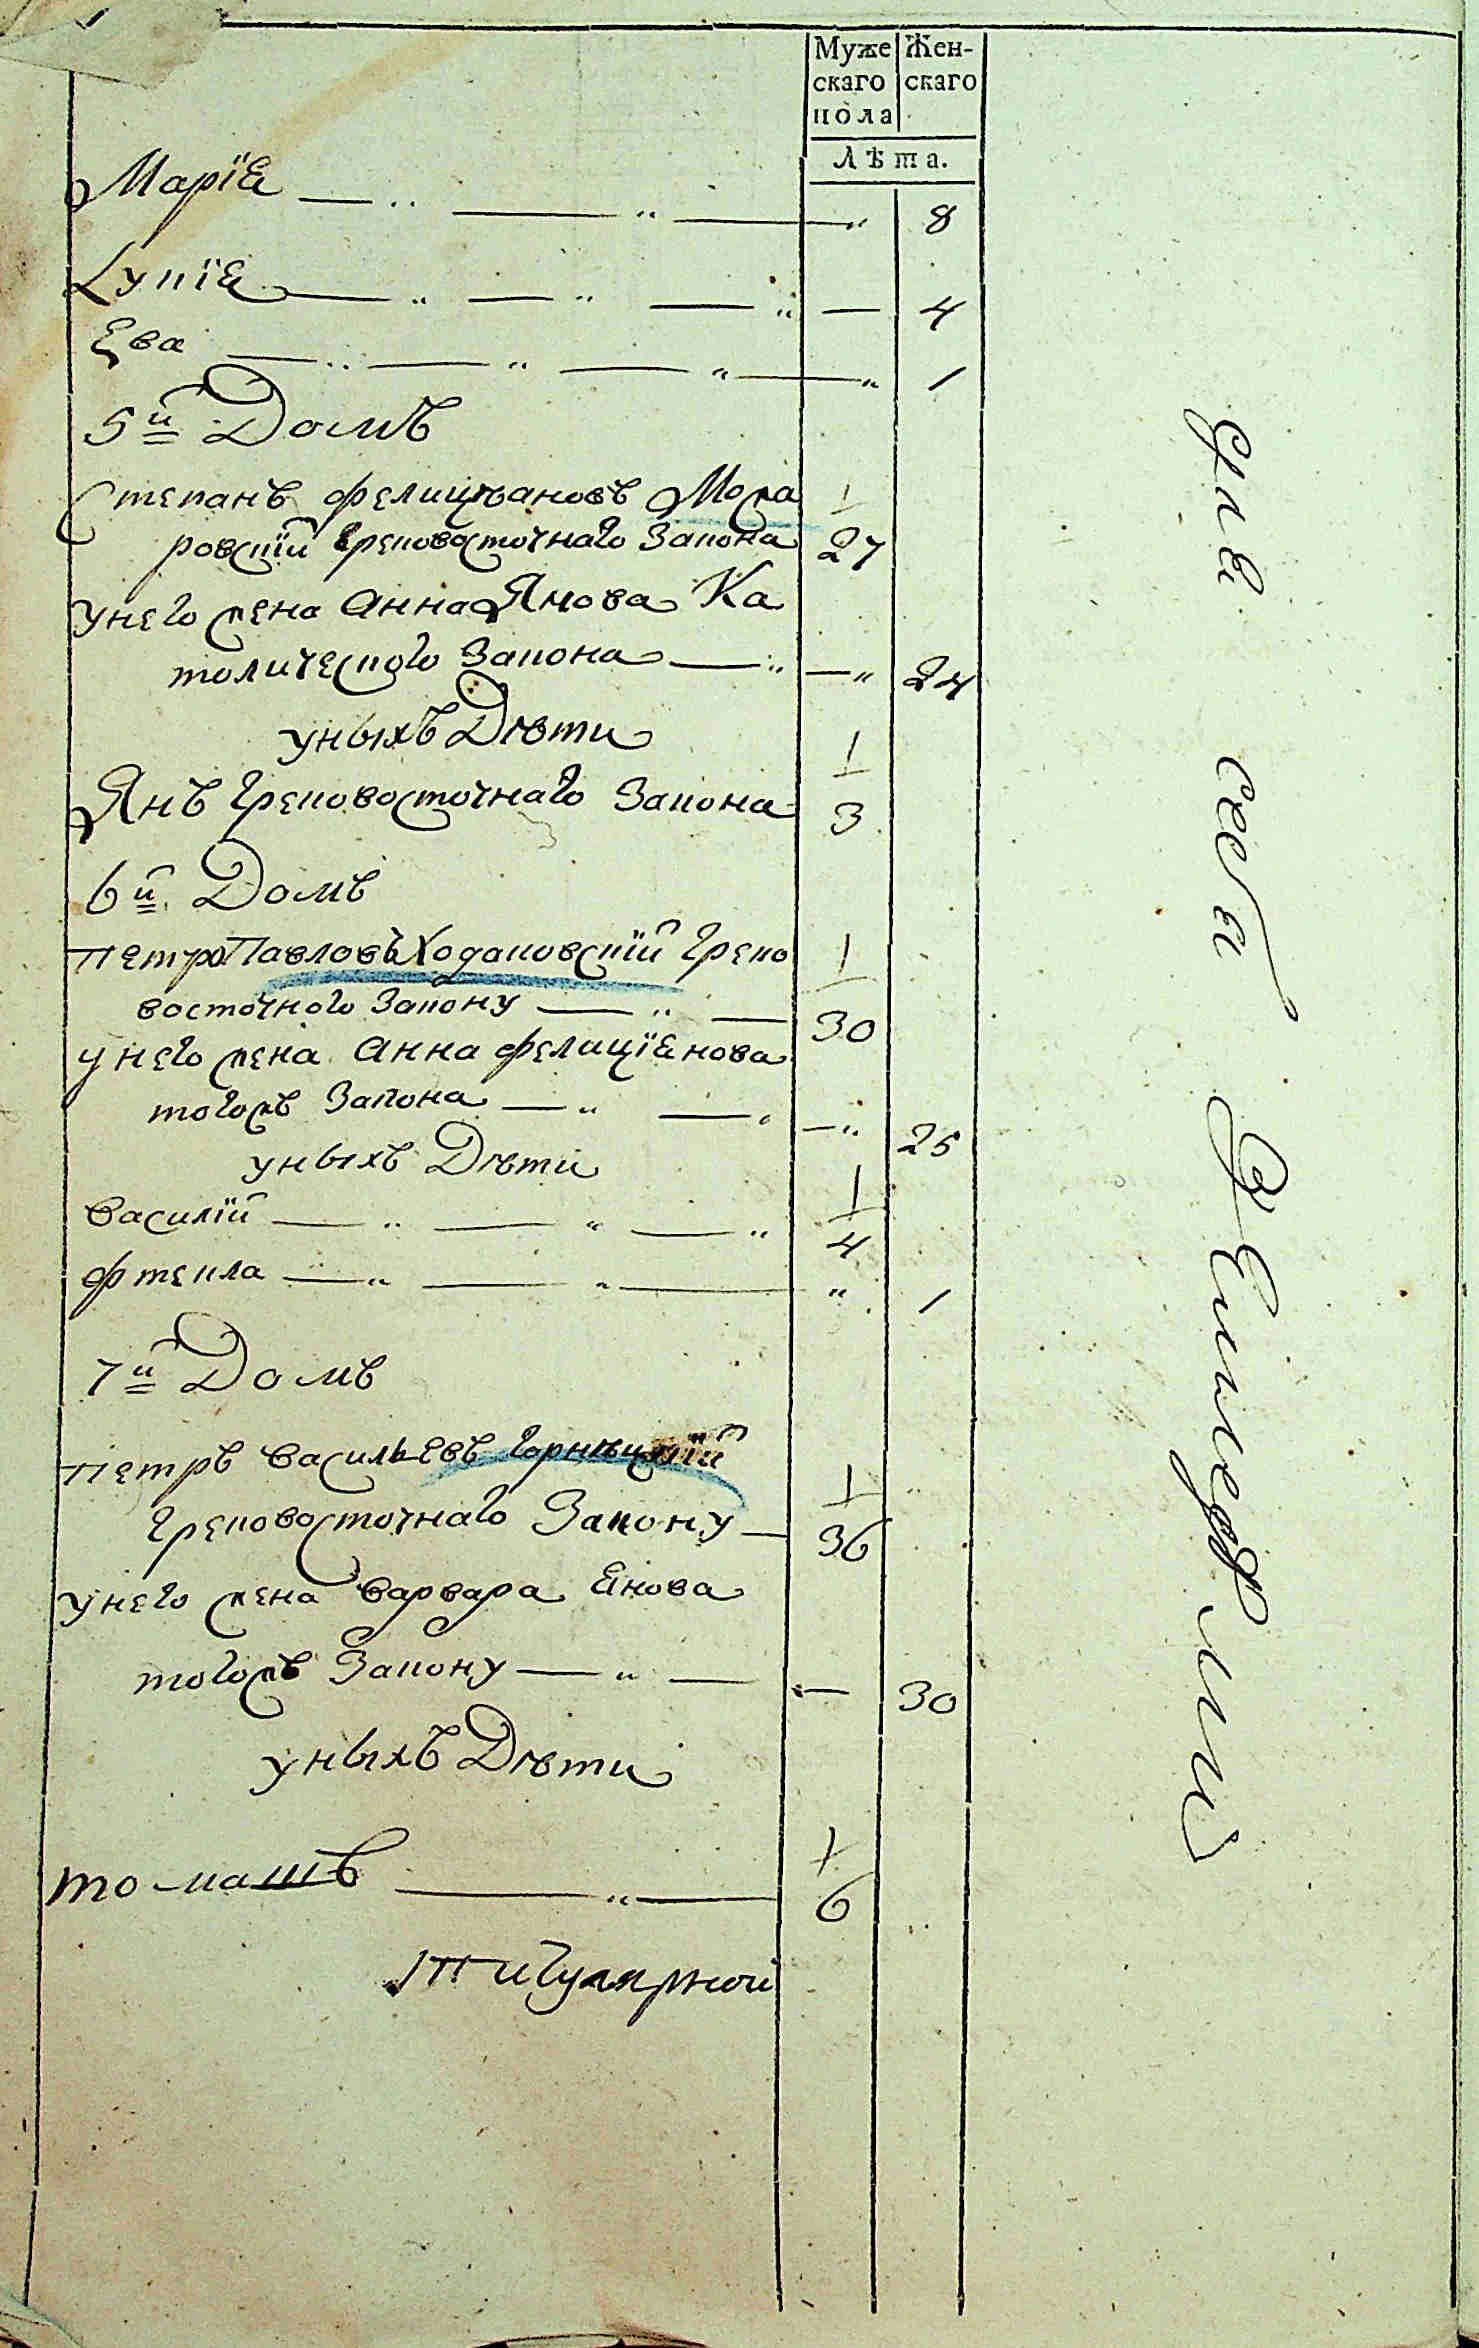 Муже Жен-
скаго скаго
пола
Лѣта.
Марія 8
Луція 4
Ева 1
5й Домъ
Степанъ Фелиціановъ Мока 1
ровскій Грековосточнаго Закона 27
унего жена Анна Янова Ка
толического Закона 24
унихъ Дѣти 1
Янъ Грековосточнаго Закона 3
6й Домъ
Петръ Павловъ Ходаковскій Греко 1
восточного Закону 30
унего жена Анна Фелиціянова
тогожъ Закона 25
уныхъ Дѣти 1
Василій 4
Фтекла 1
7й Домъ
Петръ Васильевъ Горницкій 1
Грековосточнаго Закону 36
унего жена Варвара Янова
тогожъ Закону 30
уныхъ Дѣти 1
Томашъ 6
Титулярной